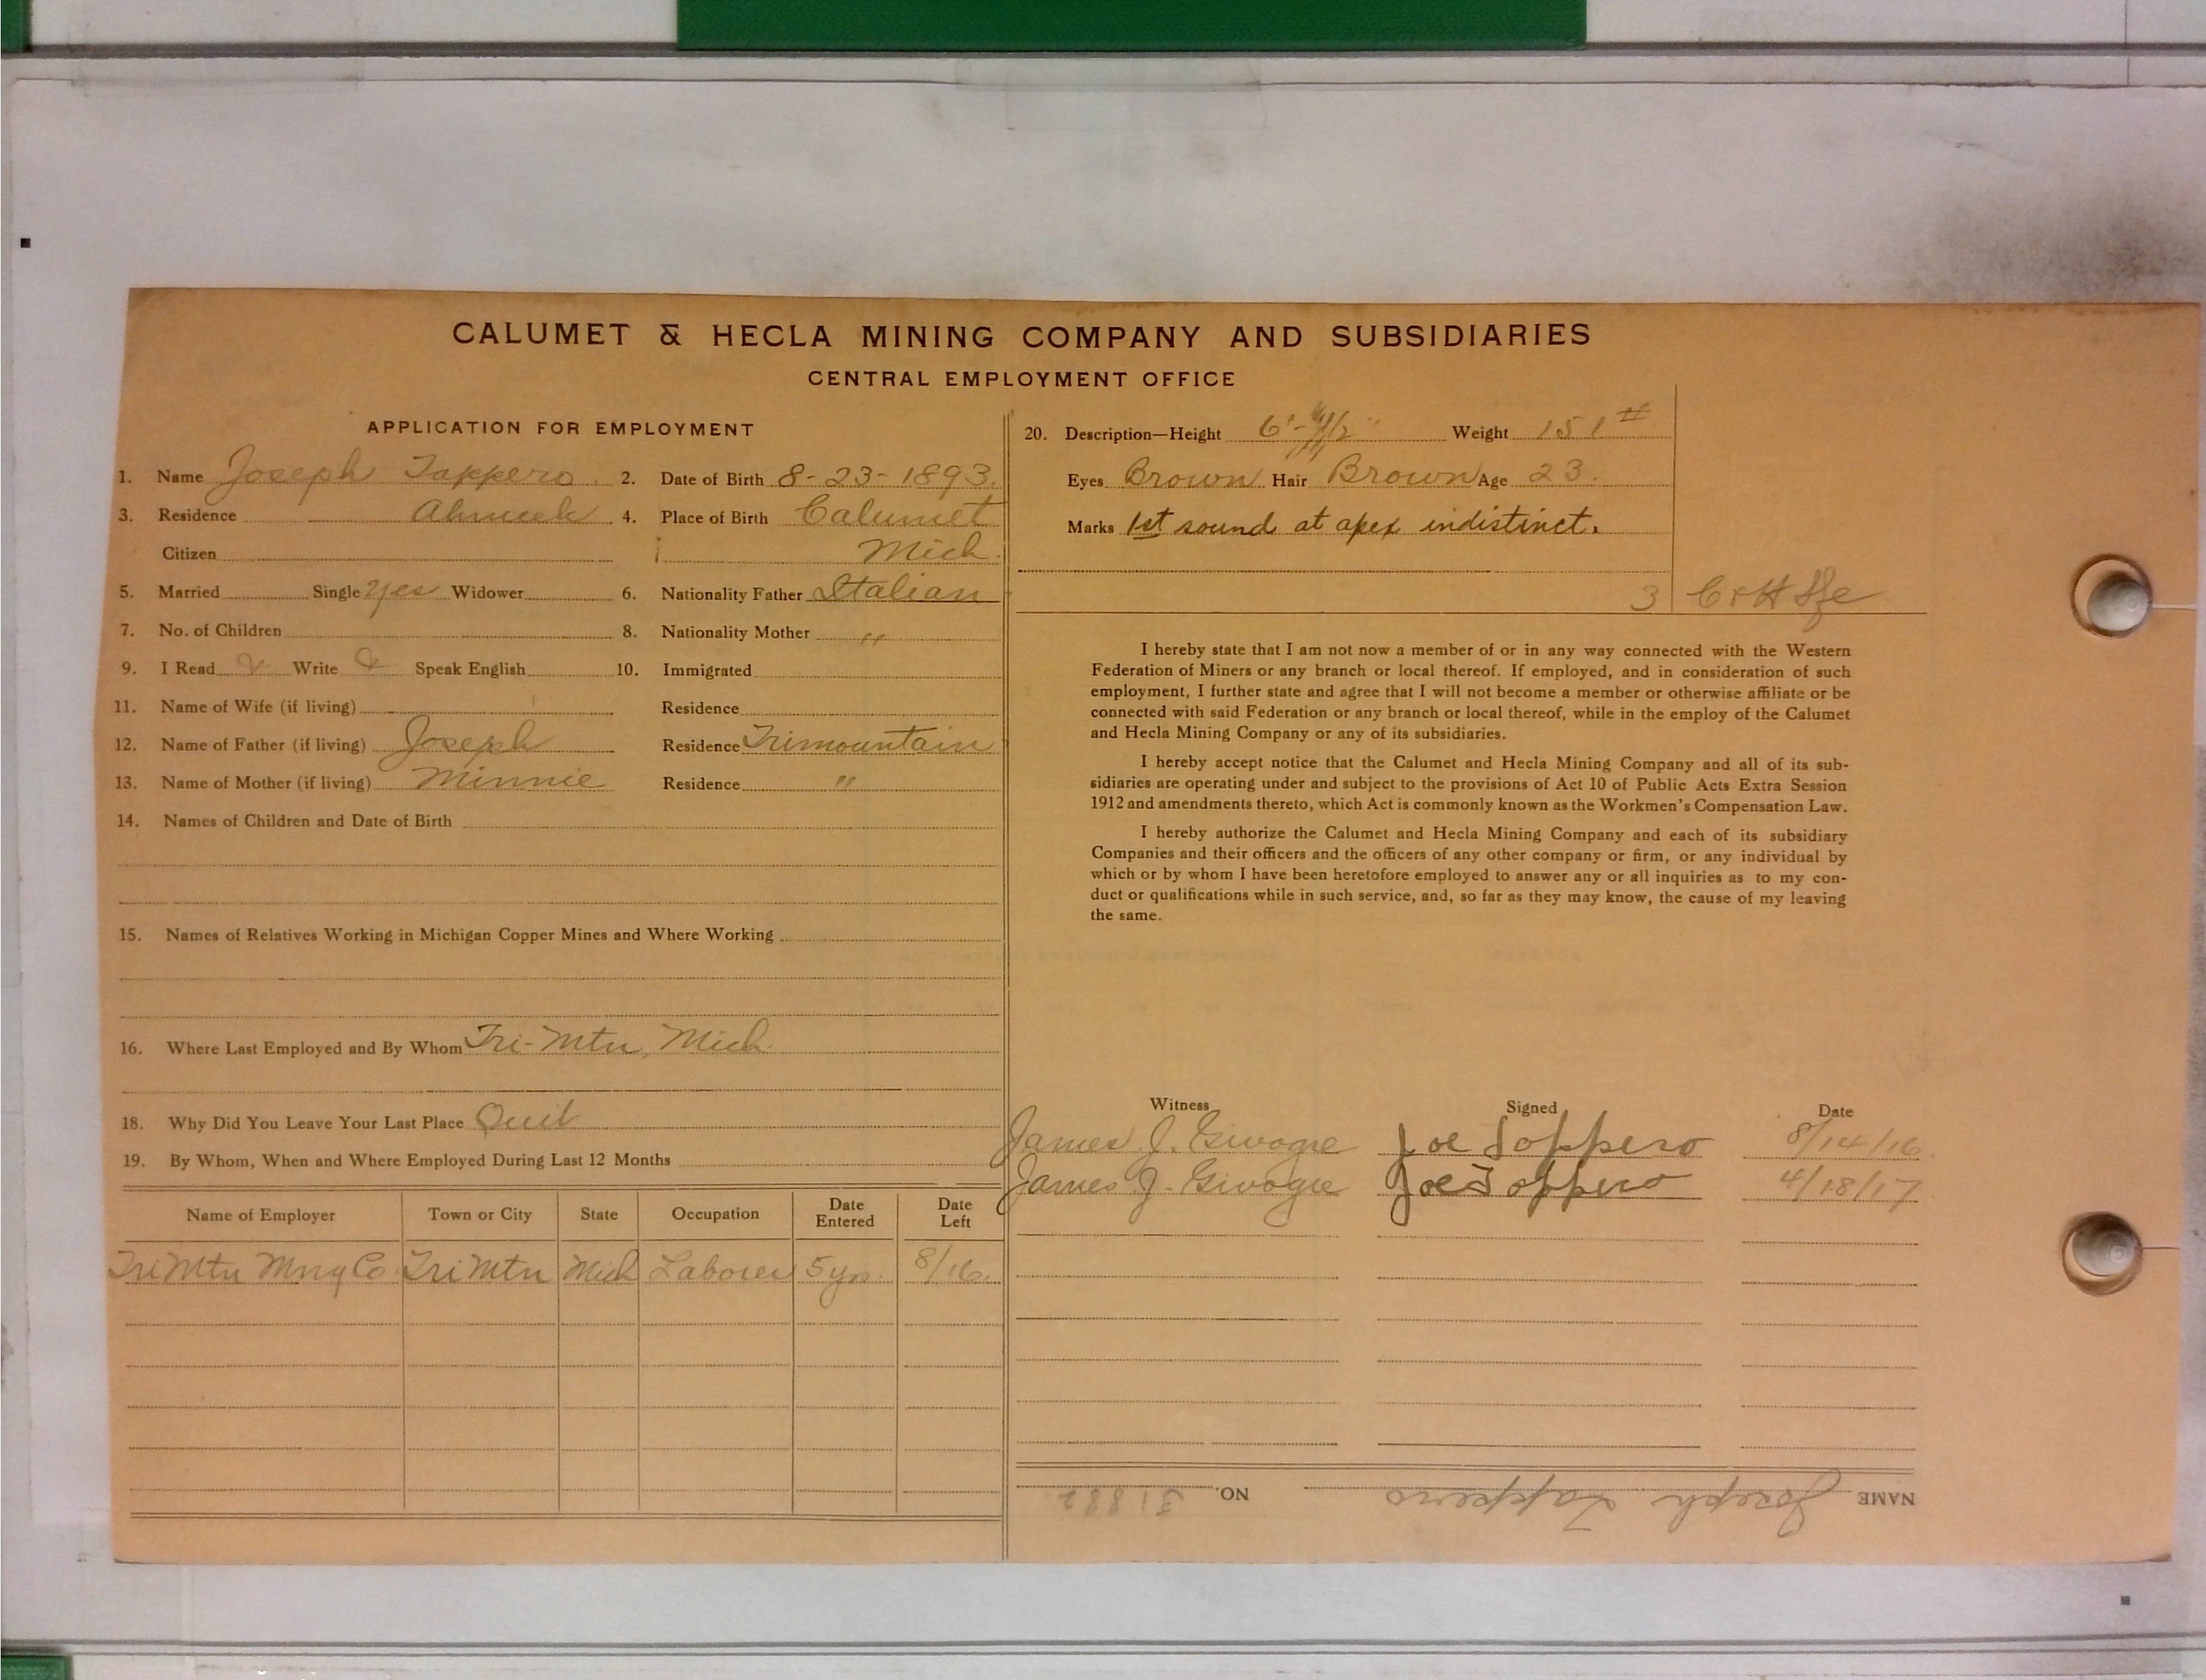 CALUMET & HECLA MINING COMPANY AND SUBSIDIARIES
CENTRAL EMPLOYMENT OFFICE
APPLICATION FOR EMPLOYMENT
1. Name Joseph Tappero. 2. Date of Birth 8-23-1893.
3. Residence Ahmeek 4. Place of Birth Calumet
Citizen Mich.
5. Married Single Yes Widower 6. Nationality Father Italian
7. No. of Children 8. Nationality Mother "
9. I Read Write Speak English 10. Immigrated
11. Name of Wife (if living) Residence
12. Name of Father (if living) Joseph Residence Trimountain
13. Name of Mother (if living) Minnie Residence "
14. Names of Children and Date of Birth
15. Names of Relatives Working in Michigan Copper Mines and Where Working
16. Where Last Employed and By Whom Tri-Mtn, Mich.
18. Why Did You Leave Your Last Place Quit
19. By Whom, When and Where Employed During Last 12 Months
Name of Employer Town or City State Occupation Date Entered Date Left
Tri Mtn Mng Co. Tri Mtn Mich Laborer 5 yrs. 8/16.
20. Description—Height 6'- Weight 151#
Eyes Brown Hair Brown Age 23.
Marks 1st sound at apex indistinct.
3 C & H
I hereby state that I am not now a member of or in any way connected with the Western
Federation of Miners or any branch or local thereof. If employed, and in consideration of such
employment, I further state and agree that I will not become a member or otherwise affiliate or be
connected with said Federation or any branch or local thereof, while in the employ of the Calumet
and Hecla Mining Company or any of its subsidiaries.
I hereby accept notice that the Calumet and Hecla Mining Company and all of its sub-
sidiaries are operating under and subject to the provisions of Act 10 of Public Acts Extra Session
1912 and amendments thereto, which Act is commonly known as the Workmen's Compensation Law.
I hereby authorize the Calumet and Hecla Mining Company and each of its subsidiary
Companies and their officers and the officers of any other company or firm, or any individual by
which or by whom I have been heretofore employed to answer any or all inquiries as to my con-
duct or qualifications while in such service, and, so far as they may know, the cause of my leaving
the same.
Witness Signed Date
James J. Joe Toppero 8/14/16.
James J. Joe Toppero 4/18/17.
NAME Joseph Tappero NO. 31882